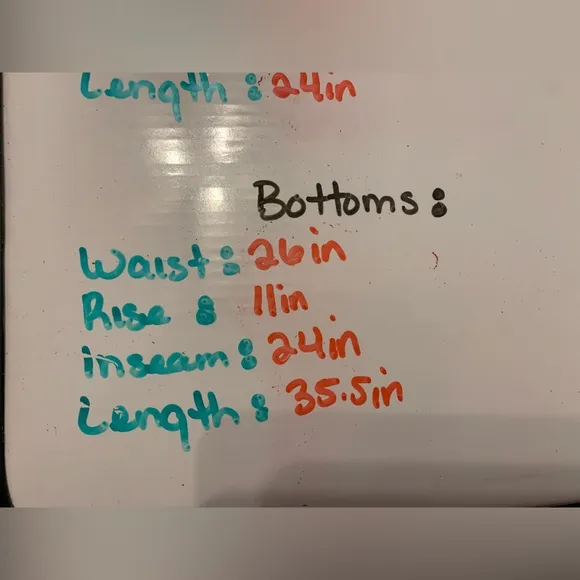 Length: 24in
Bottoms:
Waist: 26in
Rise: 11in
inseam: 24in
Length: 35.5in